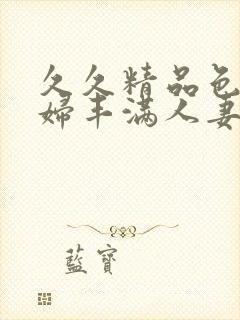 久久精品色
婦丰满人妻
藍寶